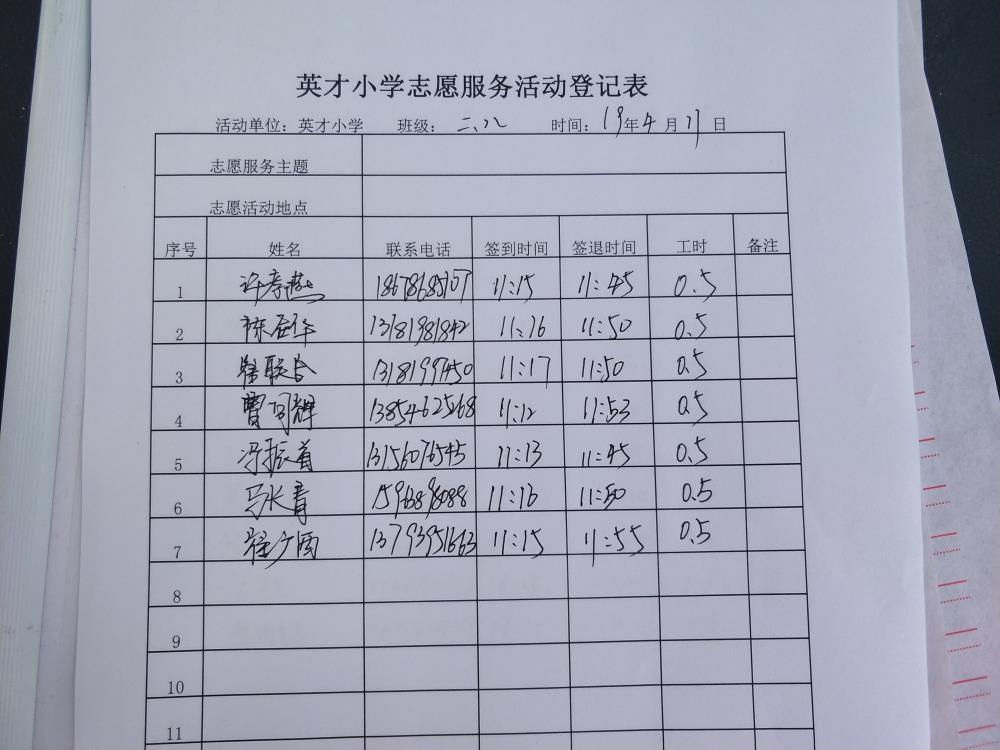 英才小学志愿服务活动登记表
活动单位：英才小学 班级：二、八 时间：19年4月17日
志愿服务主题
志愿活动地点
序号 姓名 联系电话 签到时间 签退时间 工时 备注
1 许孝燕 11:15 11:45 0.5
2 13181981842 11:16 11:50 0.5
3 11:17 11:50 0.5
4 13854625268 11:12 11:53 0.5
5 冯振首 13156076545 11:13 11:45 0.5
6 马长青 11:16 11:50 0.5
7 13793951663 11:15 11:55 0.5
8
9
10
11